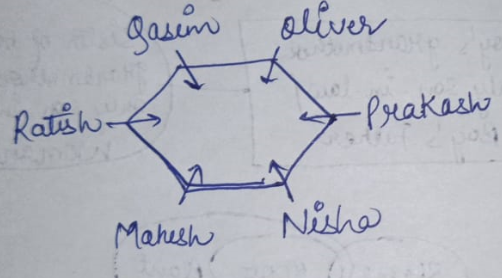 Qasim Oliver
Ratish Prakash
Mahesh Nisha